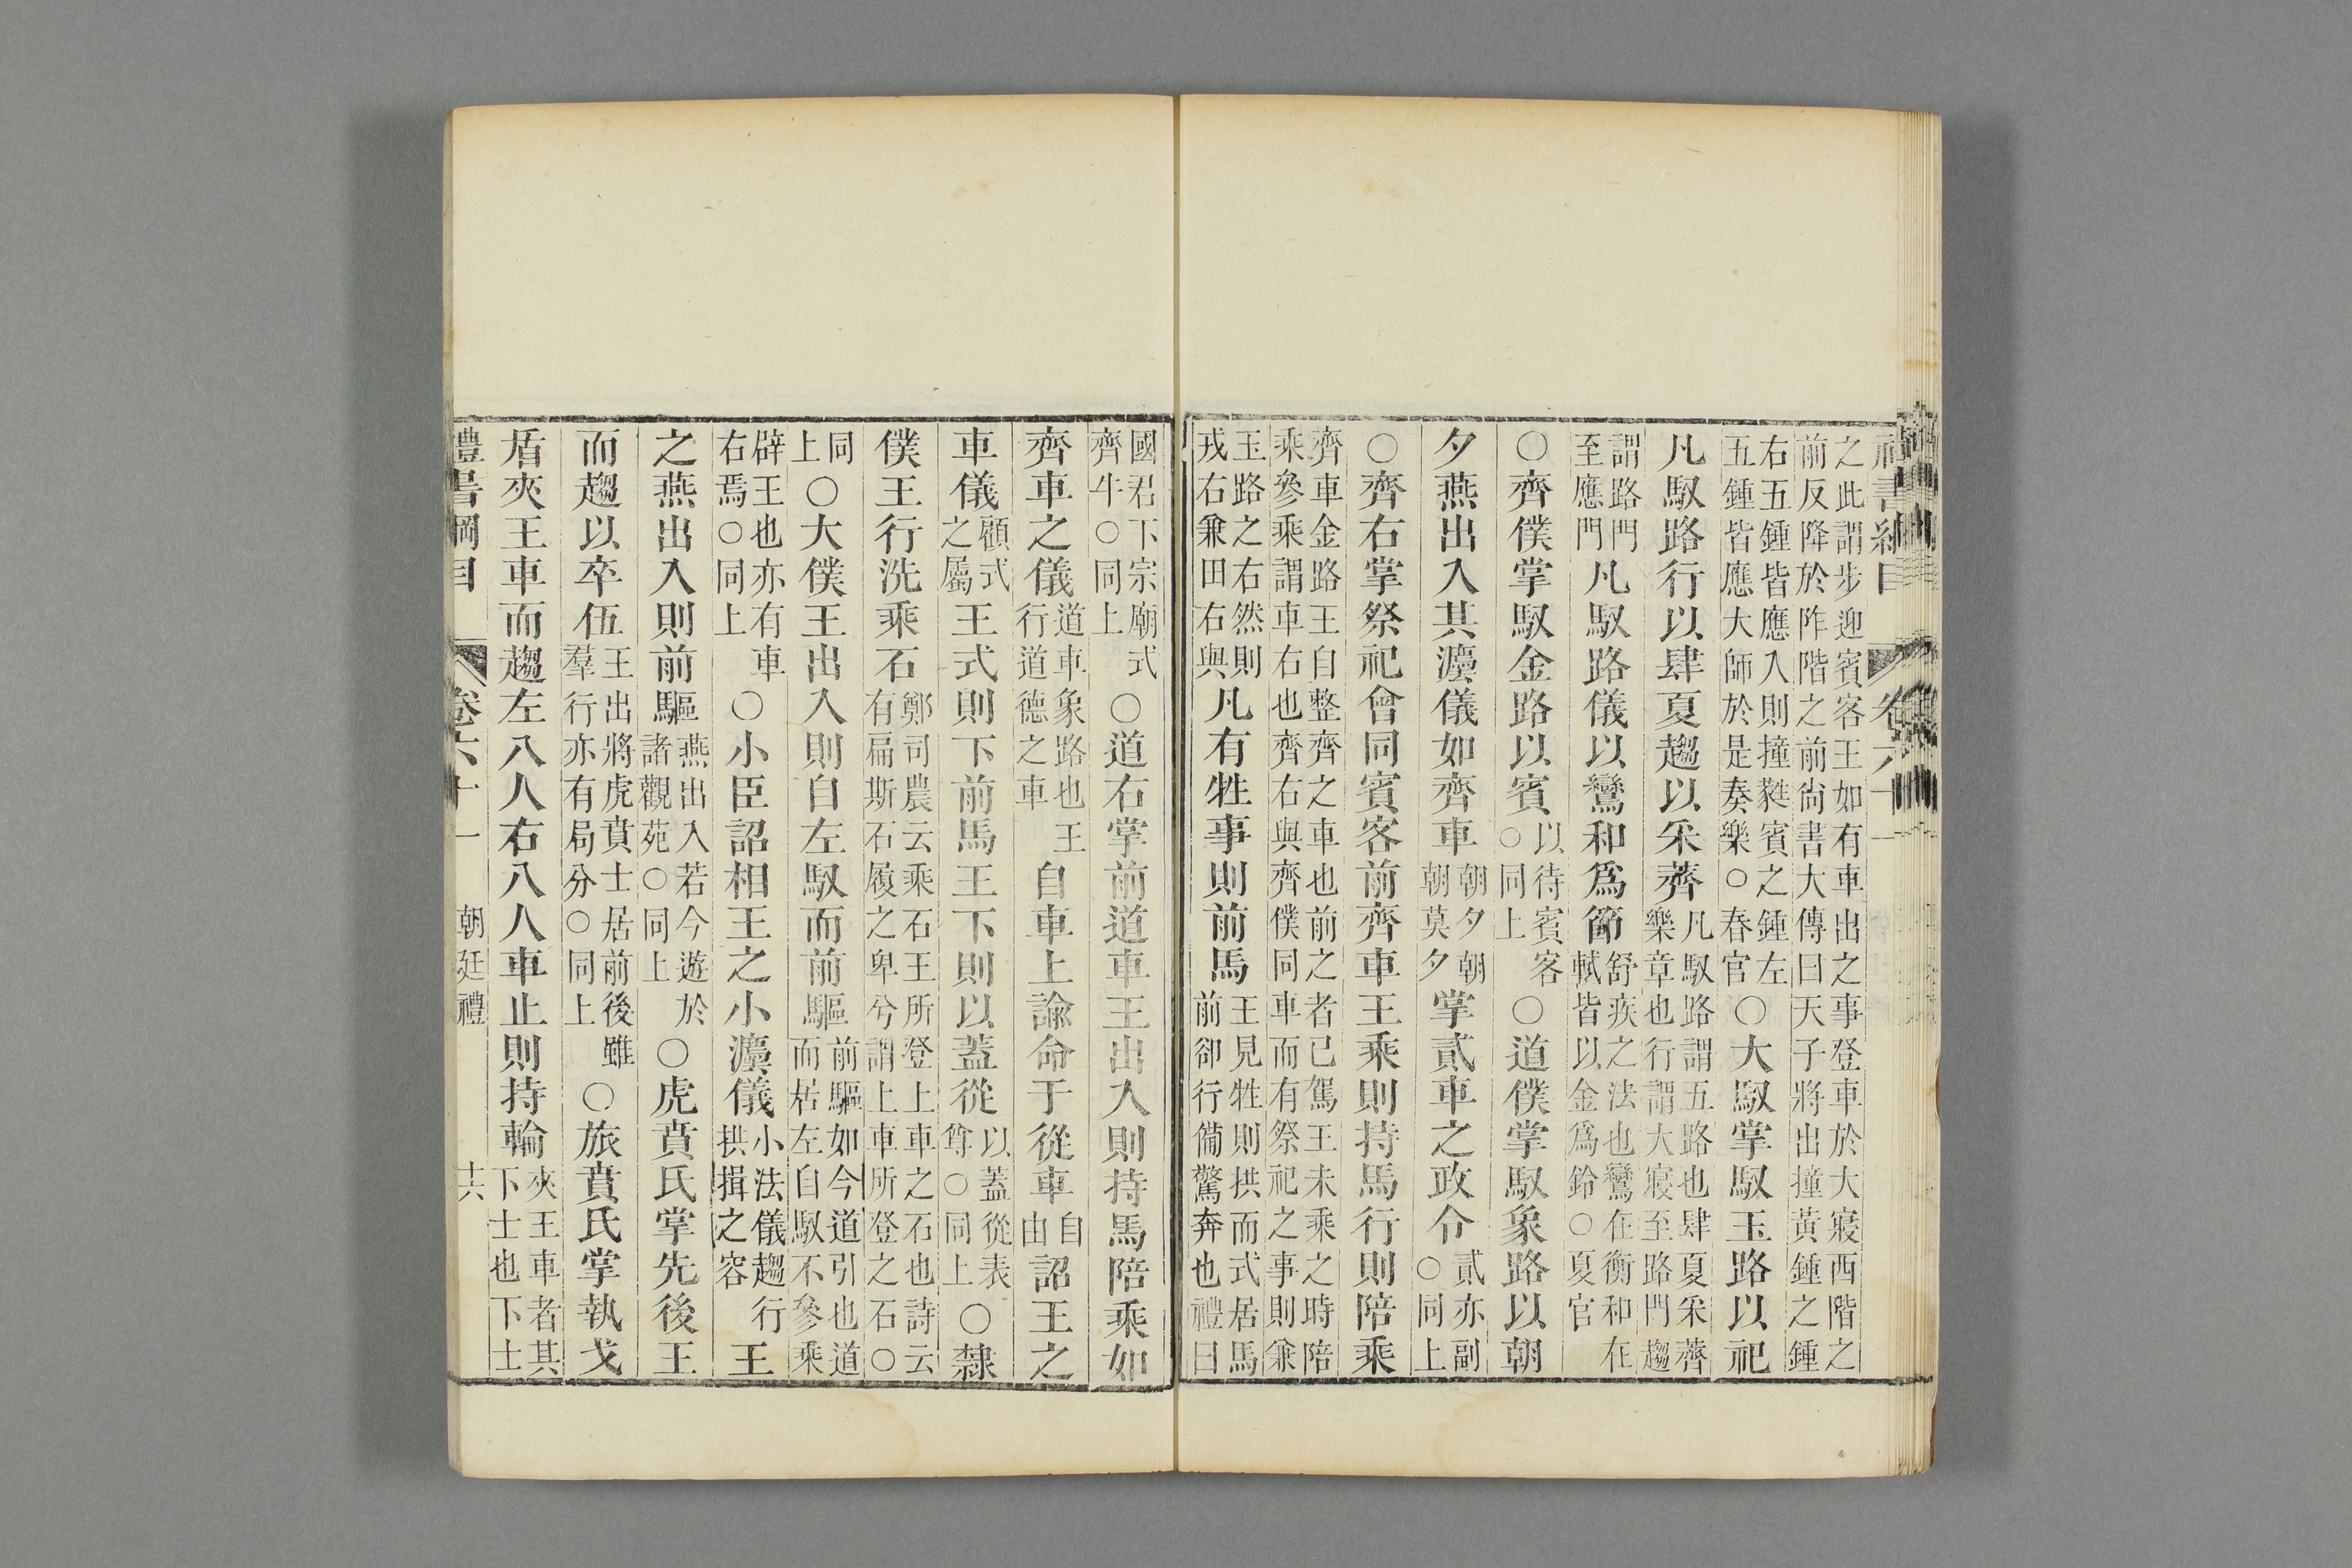 之此謂步迎賓客王如有車出之事登車於大寢西階之
前反降於阼階之前尙書大傳曰天子將出撞黃鍾之鍾
右五鍾皆應入則撞蕤賓之鍾左五鍾皆應大師於是奏樂○春官○大馭掌馭玉路以祀
凡馭路行以肆夏趨以采薺凡馭路謂五路也肆夏采薺樂章也行謂大寢至路門趨
謂路門至應門凡馭路儀以鸞和爲節舒疾之法也鸞在衡和在軾皆以金爲鈴○夏官
○齊僕掌馭金路以賓以待賓客○同上○道僕掌馭象路以朝
夕燕出入其灋儀如齊車朝夕朝朝莫夕掌貳車之政令貳亦副○同上
○齊右掌祭祀會同賓客前齊車王乘則持馬行則陪乘
齊車金路王自整齊之車也前之者已駕王未乘之時陪
乘參乘謂車右也齊右與齊僕同車而有祭祀之事則兼
玉路之右然則戎右兼田右與凡有牲事則前馬王見牲則拱而式居馬前卻行備驚奔也禮曰
國君下宗廟式齊牛○同上○道右掌前道車王出入則持馬陪乘如
齊車之儀道車象路也王行道德之車自車上諭命于從車自由詔王之
車儀顧式之屬王式則下前馬王下則以蓋從以蓋從表尊○同上○隸
僕王行洗乘石鄭司農云乘石王所登上車之石也詩云有扁斯石履之卑兮謂上車所登之石○
同上○大僕王出入則自左馭而前驅前驅如今道引也道而居左自馭不參乘
辟王也亦有車右焉○同上○小臣詔相王之小灋儀小法儀趨行拱揖之容王
之燕出入則前驅燕出入若今遊於諸觀苑○同上○虎賁氏掌先後王
而趨以卒伍王出將虎賁士居前後雖羣行亦有局分○同上○旅賁氏掌執戈
盾夾王車而趨左八人右八人車止則持輪夾王車者其下士也下士
禮書綱目 卷六十一 朝廷禮 十六